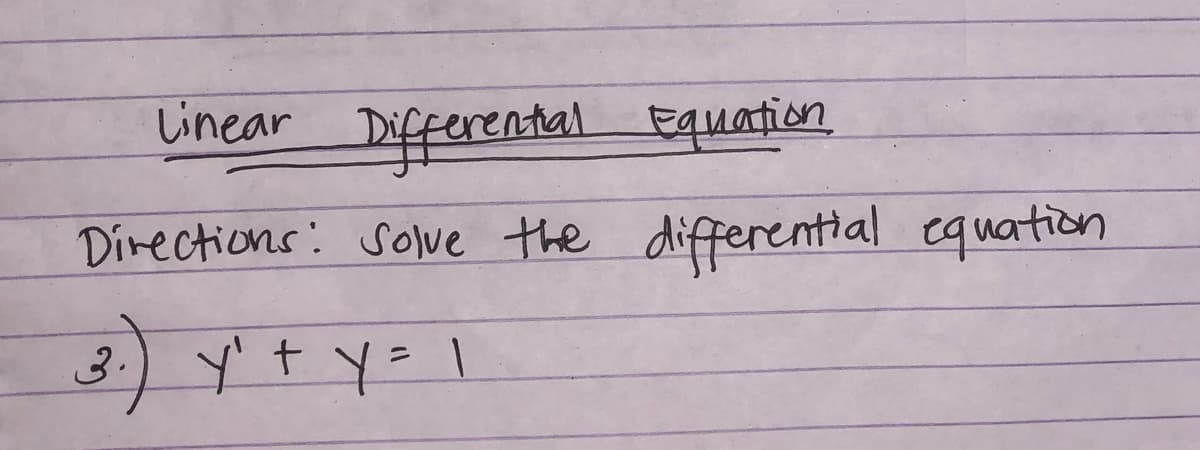 Linear Differential Equation
Directions: Solve the differential equation
3.) y' + y = 1